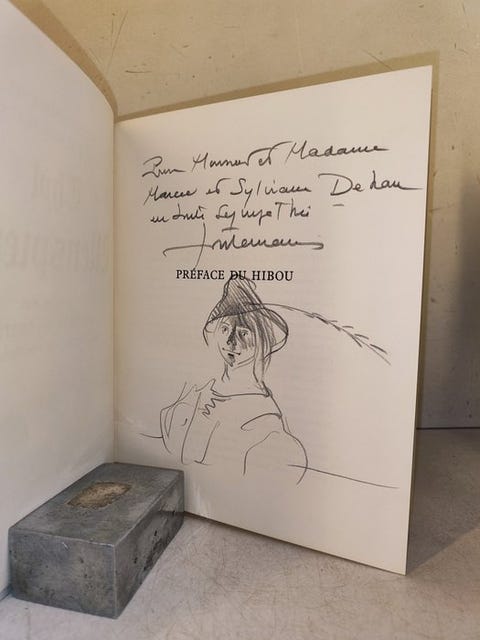 Pour Monsieur et Madame
Marcel et Sylviane Dehan
en toute Sympathie
PRÉFACE DU HIBOU